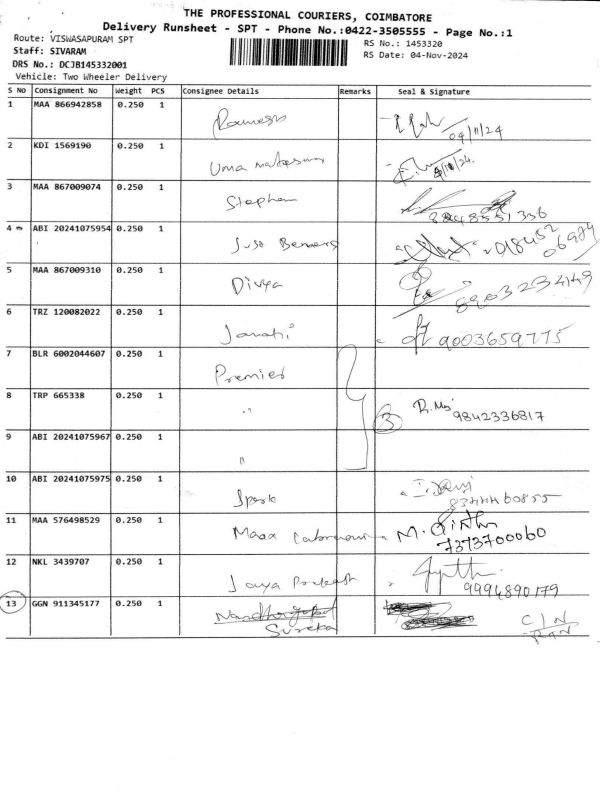 THE PROFESSIONAL COURIERS, COIMBATORE
Delivery Runsheet - SPT - Phone No.:0422-3505555 - Page No.:1
Route: VISWASAPURAM SPT
RS No.: 1453320
Staff: SIVARAM
RS Date: 04-Nov-2024
DRS No.: DCJB145332001
Vehicle: Two Wheeler Delivery
S No Consignment No Weight PCS Consignee Details Remarks Seal & Signature
1 MAA 866942858 0.250 1 Ramesh
04/11/24
2 KDI 1569190 0.250 1 Uma
4/11/24.
3 MAA 867009074 0.250 1 Stephen
8248551336
4 ABI 20241075954 0.250 1
5 MAA 867009310 0.250 1 Divya
8903234149
6 TRZ 120082022 0.250 1 Janaki
9003659775
7 BLR 6002044607 0.250 1 Premier
8 TRP 665338 0.250 1 "
3
9842336817
9 ABI 20241075967 0.250 1 "
10 ABI 20241075975 0.250 1 Spark
11 MAA 576498529 0.250 1 Maxx
7373700060
12 NKL 3439707 0.250 1 Jaya Prakash
9994890179
13 GGN 911345177 0.250 1
Sureka